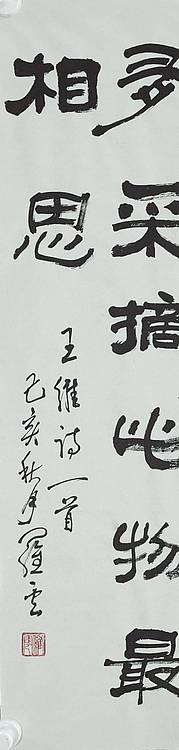 多采擷此物最
相思
王維詩一首
己亥秋月羅雲